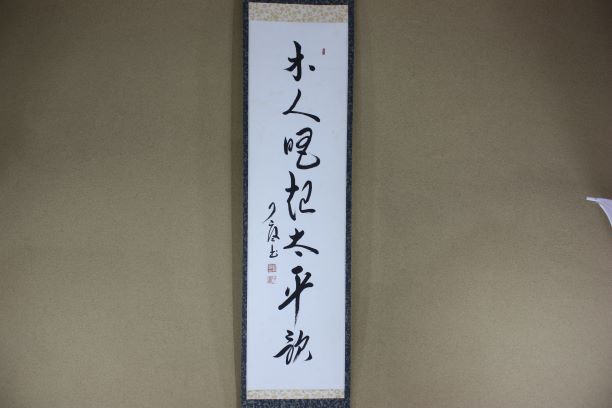 木人唱起太平歌